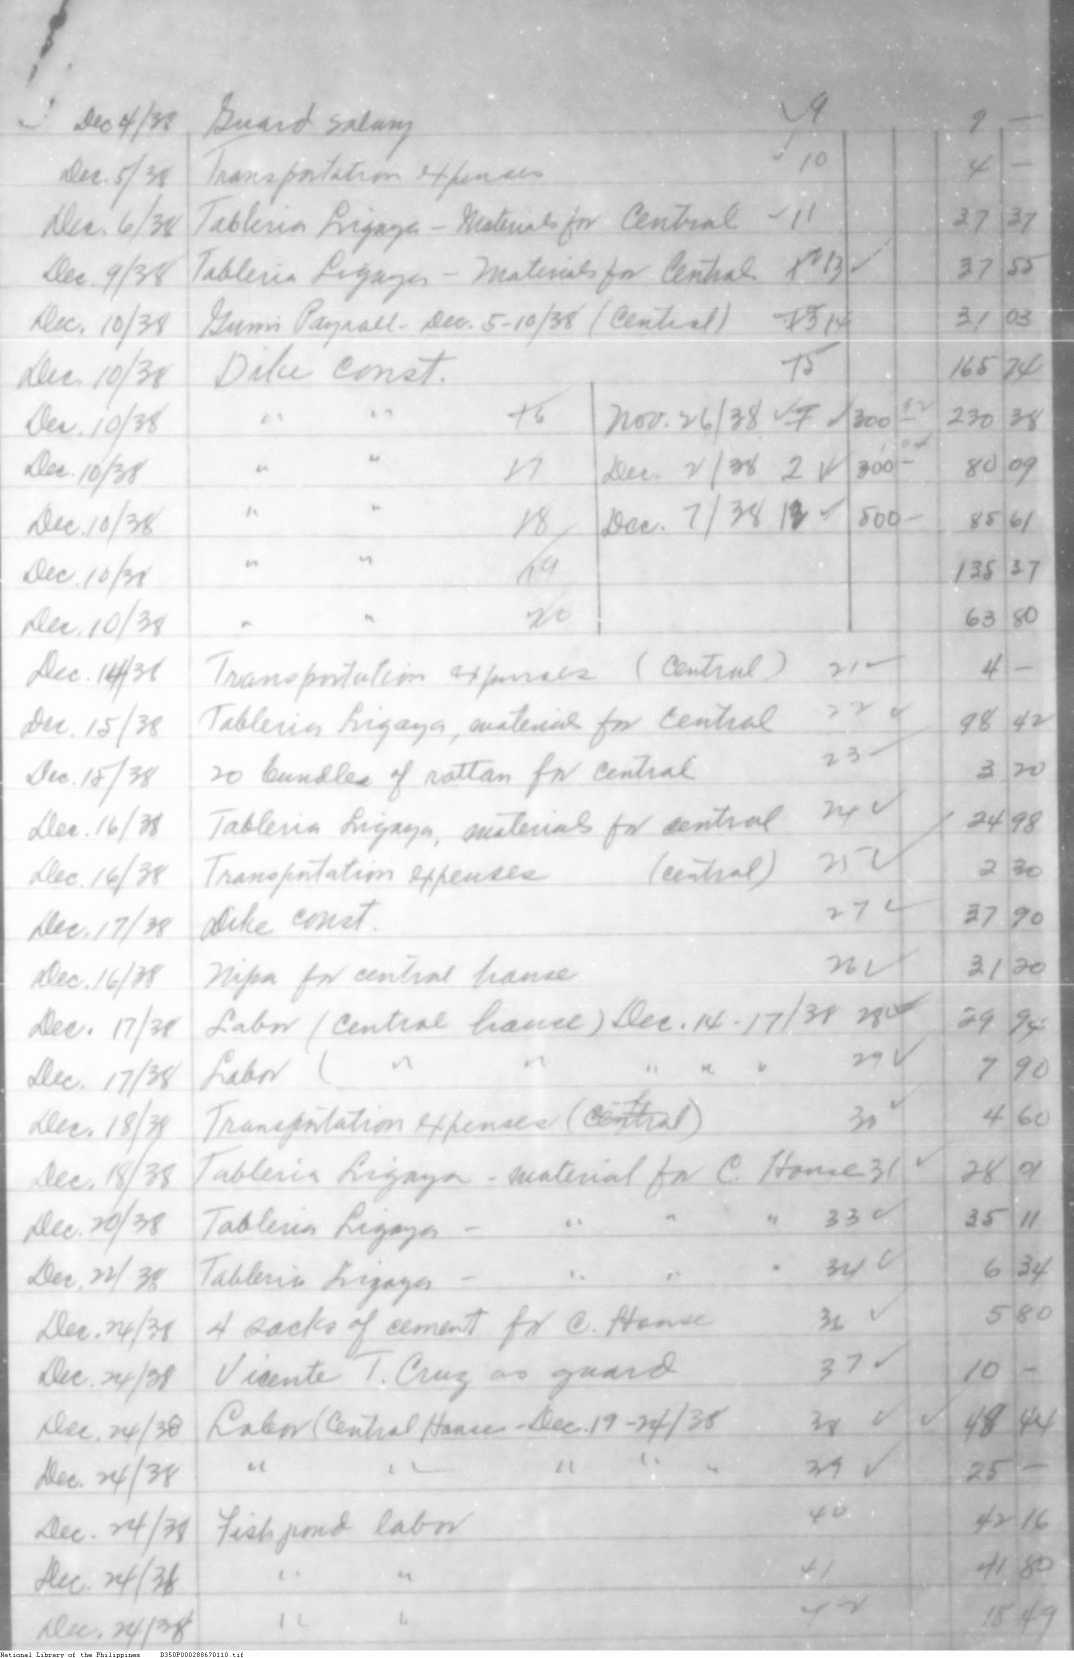 Dec 4/38 Guard salary 9 9 —
Dec. 5/38 Transportation expenses 10 4 —
Dec. 6/38 Tableria Ligaya - Materials for Central 11 37 37
Dec. 9/38 Tableria Ligaya - Materials for Central 13 37 55
Dec. 10/38 Payroll - Dec. 5-10/38 (Central) 14 31 03
Dec. 10/38 Dike const. 15 165 74
Dec. 10/38 " " 16 Nov. 26/38 300 — 230 38
Dec. 10/38 " " 17 Dec. 2/38 2 300 — 80 09
Dec. 10/38 " " 18 Dec. 7/38 500 — 85 61
Dec. 10/38 " " 19 135 37
Dec. 10/38 " " 20 63 80
Dec. 14/38 Transportation expenses (Central) 21 4 —
Dec. 15/38 Tableria Ligaya, material for Central 22 98 42
Dec. 15/38 20 bundles of rattan for central 23 3 20
Dec. 16/38 Tableria Ligaya, materials for central 24 24 98
Dec. 16/38 Transportation expenses (central) 25 2 30
Dec. 17/38 Dike const. 27 37 90
Dec. 16/38 Nipa for central house 26 31 20
Dec. 17/38 Labor (Central house) Dec. 14-17/38 28 29 94
Dec. 17/38 Labor ( " " " " " 29 7 90
Dec. 18/38 Transportation expenses (Central) 30 4 60
Dec. 18/38 Tableria Ligaya - material for C. House 31 28 01
Dec. 20/38 Tableria Ligaya - " " " 33 35 11
Dec. 22/38 Tableria Ligaya - " " " 34 6 34
Dec. 24/38 4 sacks of cement for C. House 36 5 80
Dec. 24/38 Vicente T. Cruz as guard 37 10 —
Dec. 24/38 Labor (Central House - Dec. 19-24/38 38 48 44
Dec. 24/38 " " " " " 39 25 —
Dec. 24/38 Fishpond labor 40 42 16
Dec. 24/38 " " 41 41 80
Dec. 24/38 " " 42 15 49
National Library of the Philippines D350P000288670110.tif